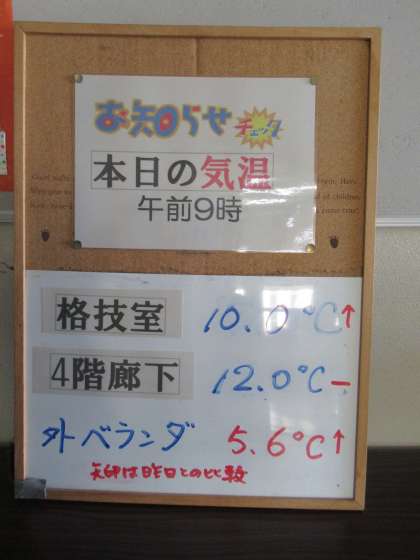 お知らせ
チェック
本日の気温
午前9時
格技室 10.0℃↑
4階廊下 12.0℃-
外ベランダ 5.6℃↑
矢印は昨日との比較